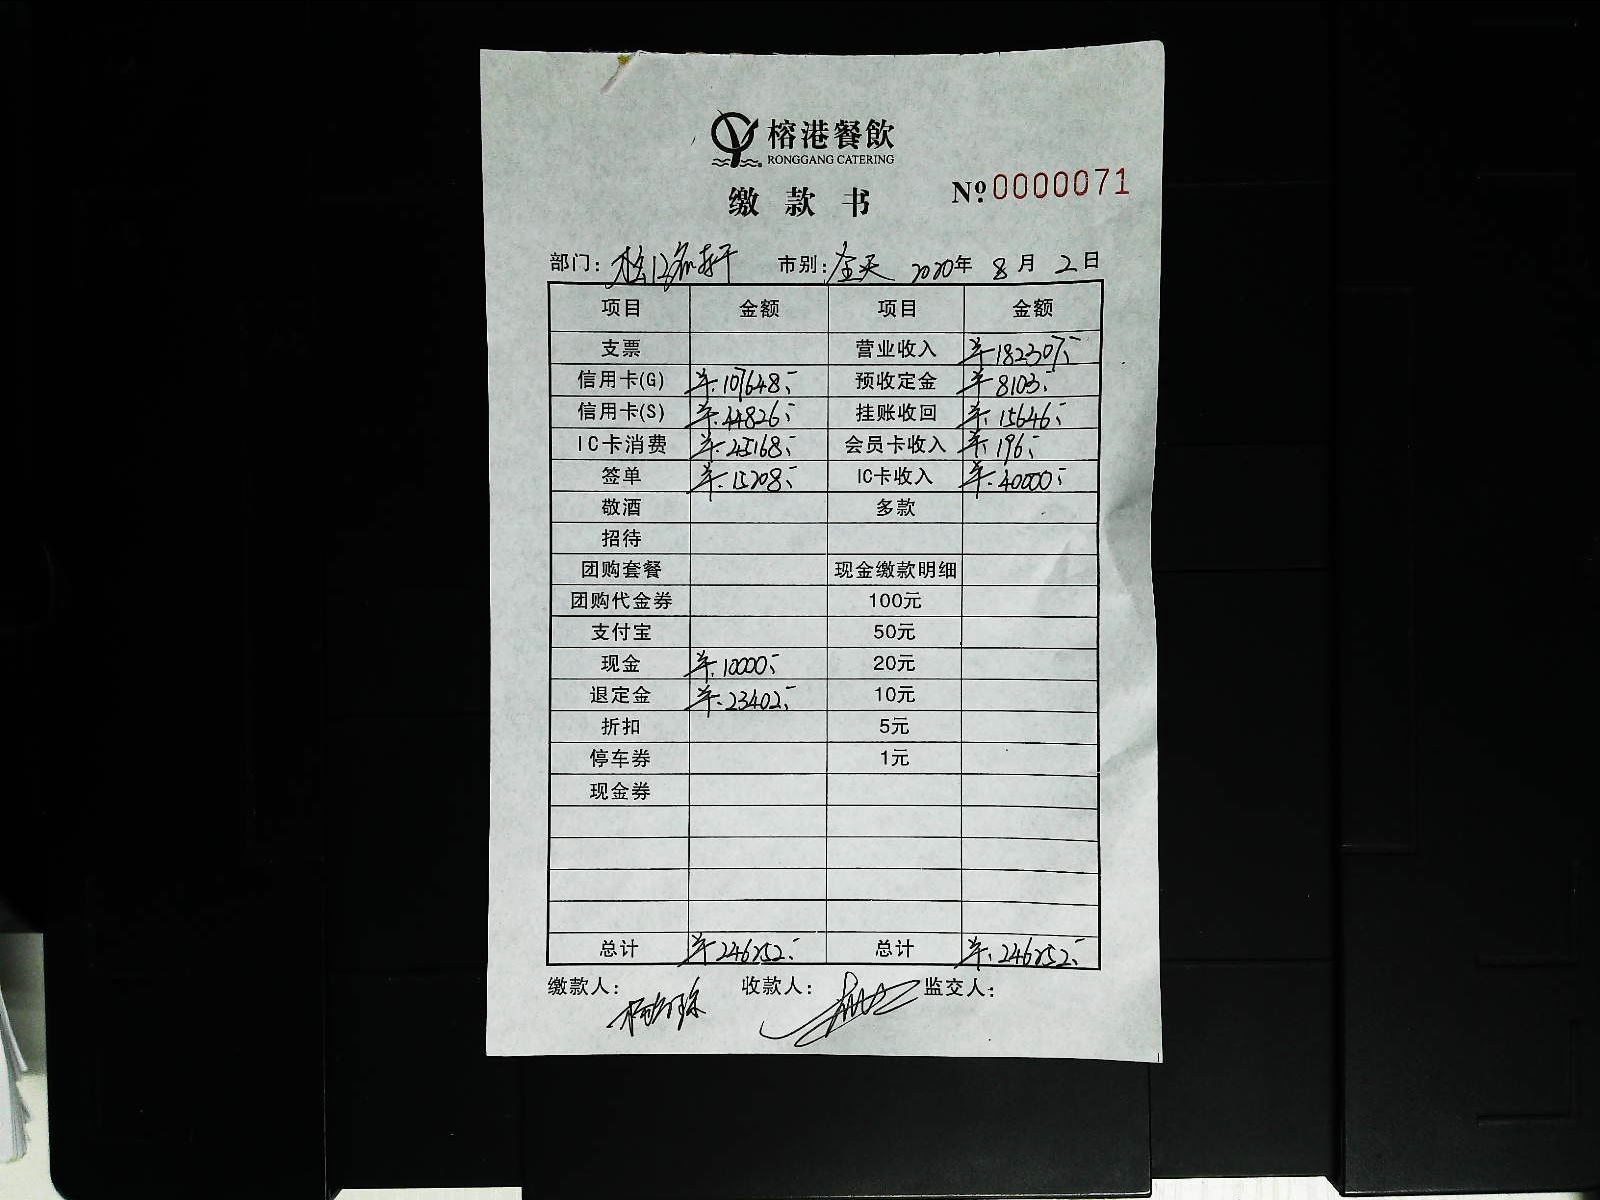 榕港餐飲
RONGGANG CATERING
缴款书 Nº.0000071
部门: 市别:全天 2020年 8月 2日
项目 金额 项目 金额
支票 营业收入 ¥182307.-
信用卡(G) ¥.107648.- 预收定金 ¥8103.-
信用卡(S) ¥.44826.- 挂账收回 ¥.15646.-
IC卡消费 ¥.45168.- 会员卡收入 ¥.196.-
签单 ¥.15208.- IC卡收入 ¥.40000.-
敬酒 多款
招待
团购套餐 现金缴款明细
团购代金券 100元
支付宝 50元
现金 ¥.10000.- 20元
退定金 ¥.23402.- 10元
折扣 5元
停车券 1元
现金券
总计 ¥246252.- 总计 ¥.246252.-
缴款人: 收款人: 监交人: